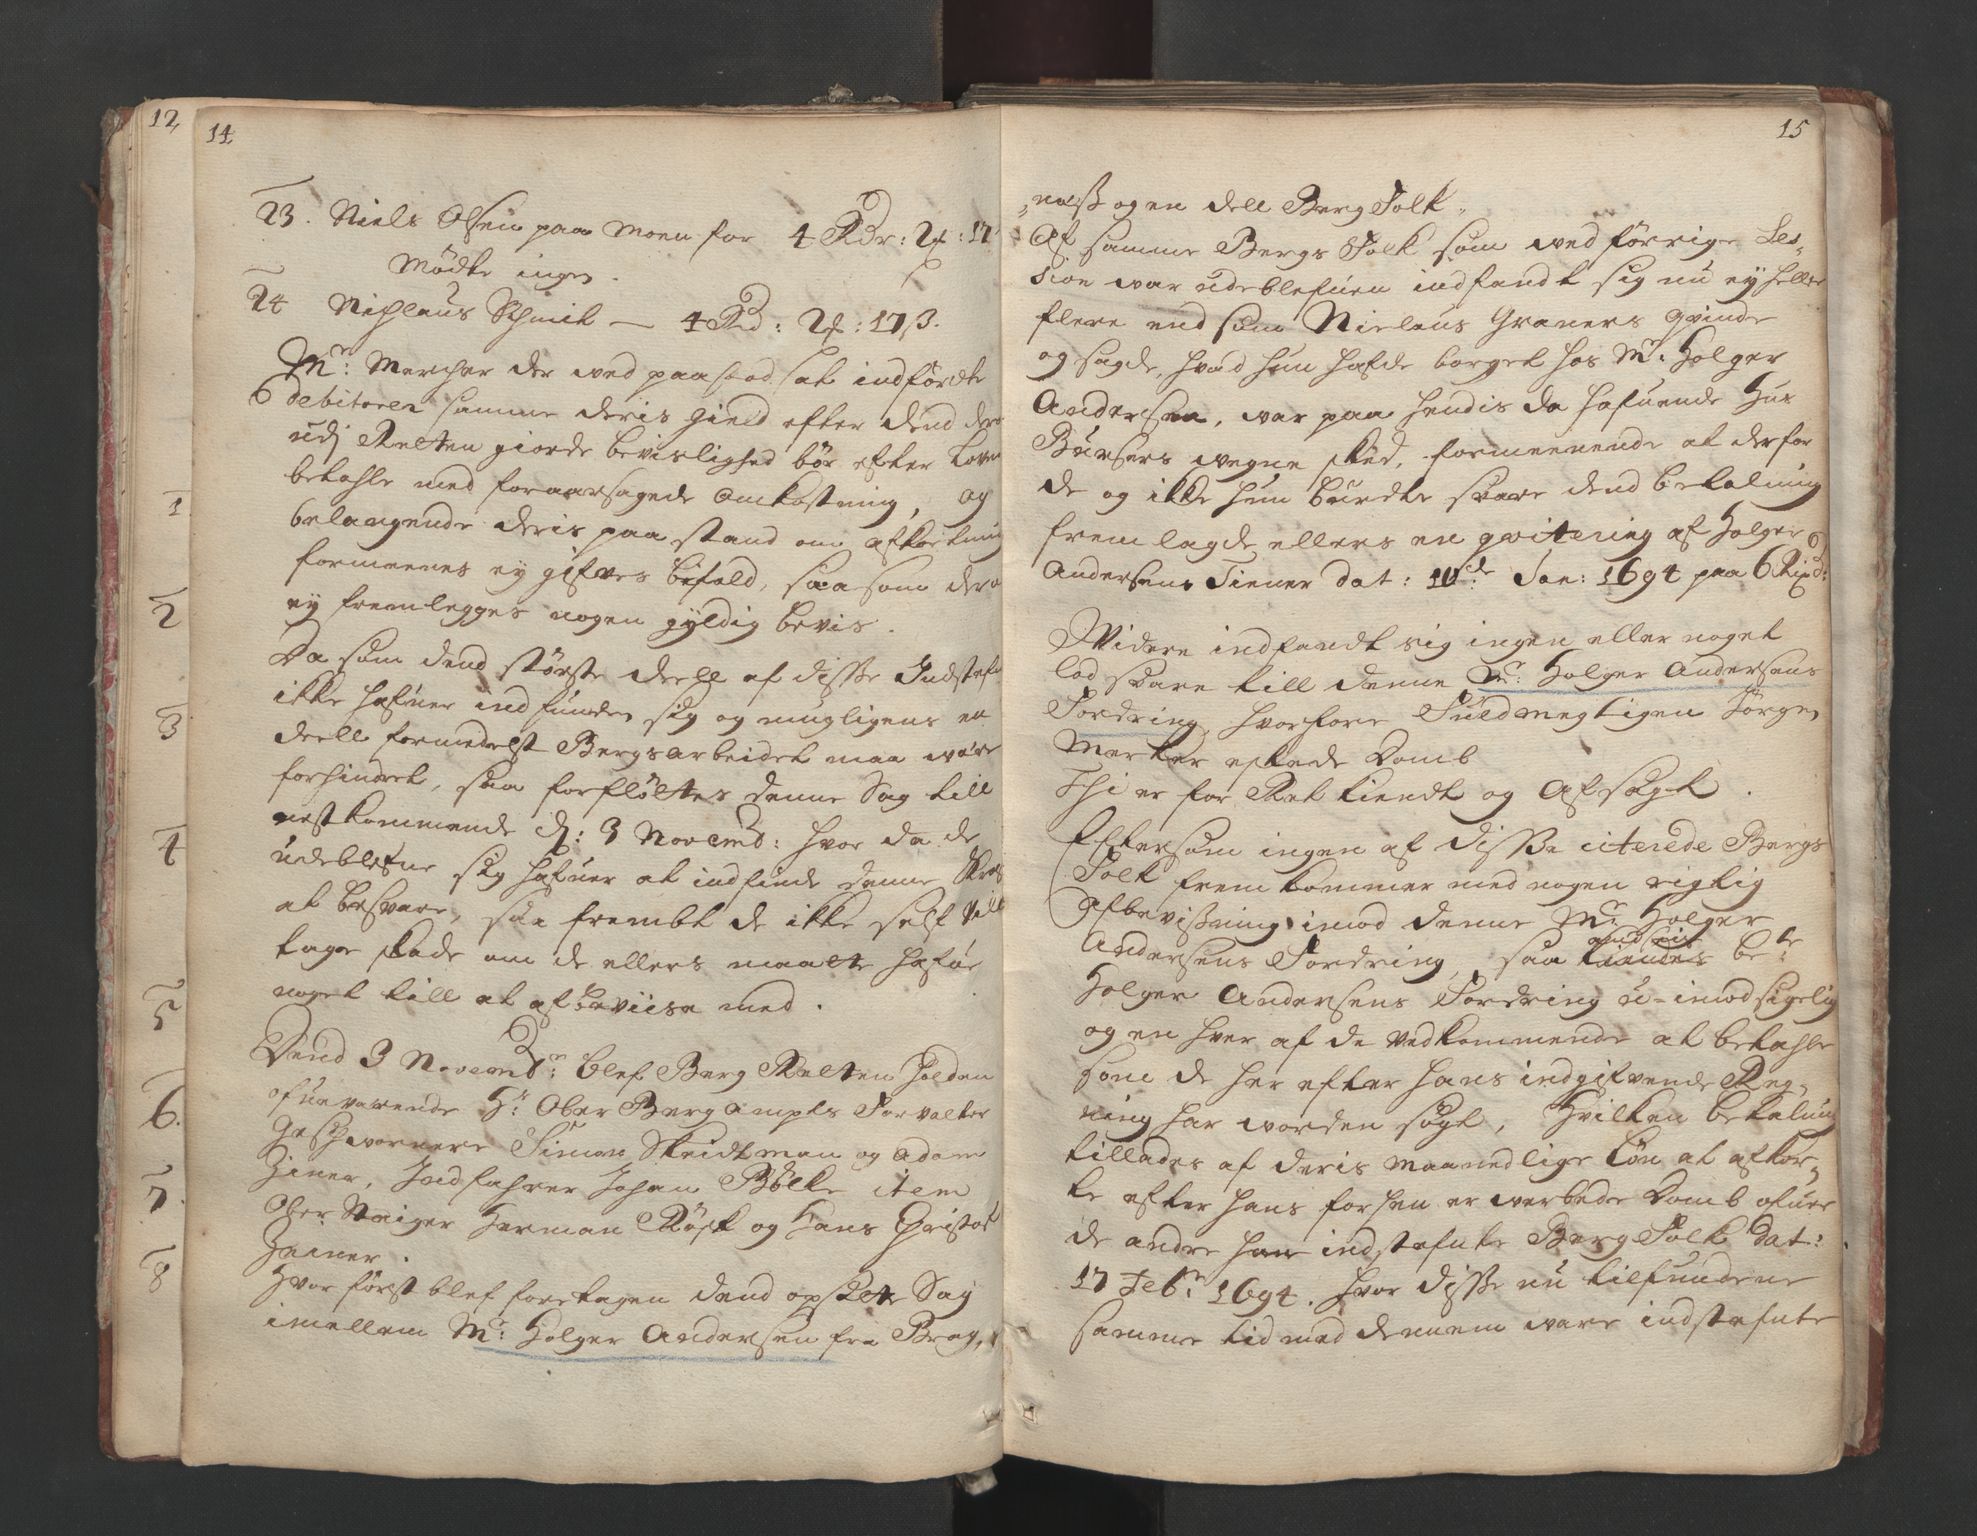 12
14
23. Niels Olsen paa Moen for 4 Rdr: 2 : 17
Mödte ingen.
24 Nichlaus Schmit — 4 Rd: 2 : 17 s.
Mr: Mercher der ved paastod at indförte
debitorer samme deris gield efter dend der
udj Retten giorde bevislighed bör efter Loven
betahle med foraarsagede Omkostning, og
belangende deris paastand om afkortning
formeenes ey gifves bifald, saasom der
ey fremlegges nogen gyldig bevis.
Da som dend störste deell af disse Indstefn
ikke hafuer indfunden sig og mugligens en
deell formedelst Bergsarbeidet maa være
forhindret, saa forfløttes denne Sag till
nestkommende d: 3 Novemb: hvor da de
udeblefne sig hafuer at indfinde denne
at besvare, saa frembt de ikke self vill
tage skade om de ellers maatte hafue
noget till at afbeviise med.
Dend 3 Novembr: blef Berg Retten holden
ofuerværende Hr: Ober Berg Ampts Forvalter
Geschwornere Simon Skeidtman og Adam
Ziener, Indfahrer Johan Bölke item
Ober Steiger Herman Röck og Hans Christof
Zainer.
Hvor först blef foretagen dend opsatte Sag
imellem Mr: Holger Andersen fra Brag,
1
2
3
4
5
6.
7.
8
15
næss og en dell Berg Folk.
Af samme Bergs Folk som ved forrige Ses-
sion var udeblefuen indfandt sig nu ey heller
flere end som Nielaus Graners qvinde
og sagde, hvad hun hafde borget hos Mr: Holger
Andersen, var paa hendis da hafuende Hus
Bursers vegne skeed, formeenende at derfor
de og ikke hun burdte svare dend betalning
fremlagde ellers en qvitering af Holger
Andersens Tiener dat: 10de Jan: 1694 paa 6 Rixd:
Widere indfandt sig ingen eller noget
lod svare till denne Mr: Holger Andersens
Fordring, hvorfore Fuldmegtigen Jörgen
Merker eskede Domb
Thi er for Ret kiendt og Afsagt.
Eftersom ingen af disse citerede Bergs
Folk fremkommer med nogen rigtig
Afbevissning imod denne Mr: Holger
Andersens Fordring, saa kiendes be:te
Holger Andersens Fordring u-imodsigelig
og en hver af de vedkommende at betahle
som de her efter hans indgifvende Reg-
ning har worden sögt, Hvilken betaling
tillades af deris maanedlige Lön at afkor-
te efter hans forhen erwerbede Domb ofuer
de andre hans indstefnte Berg Folk dat:
17 Febr: 1694. hvor disse nu tilfundene
samme tid med dennem ware indstefnte